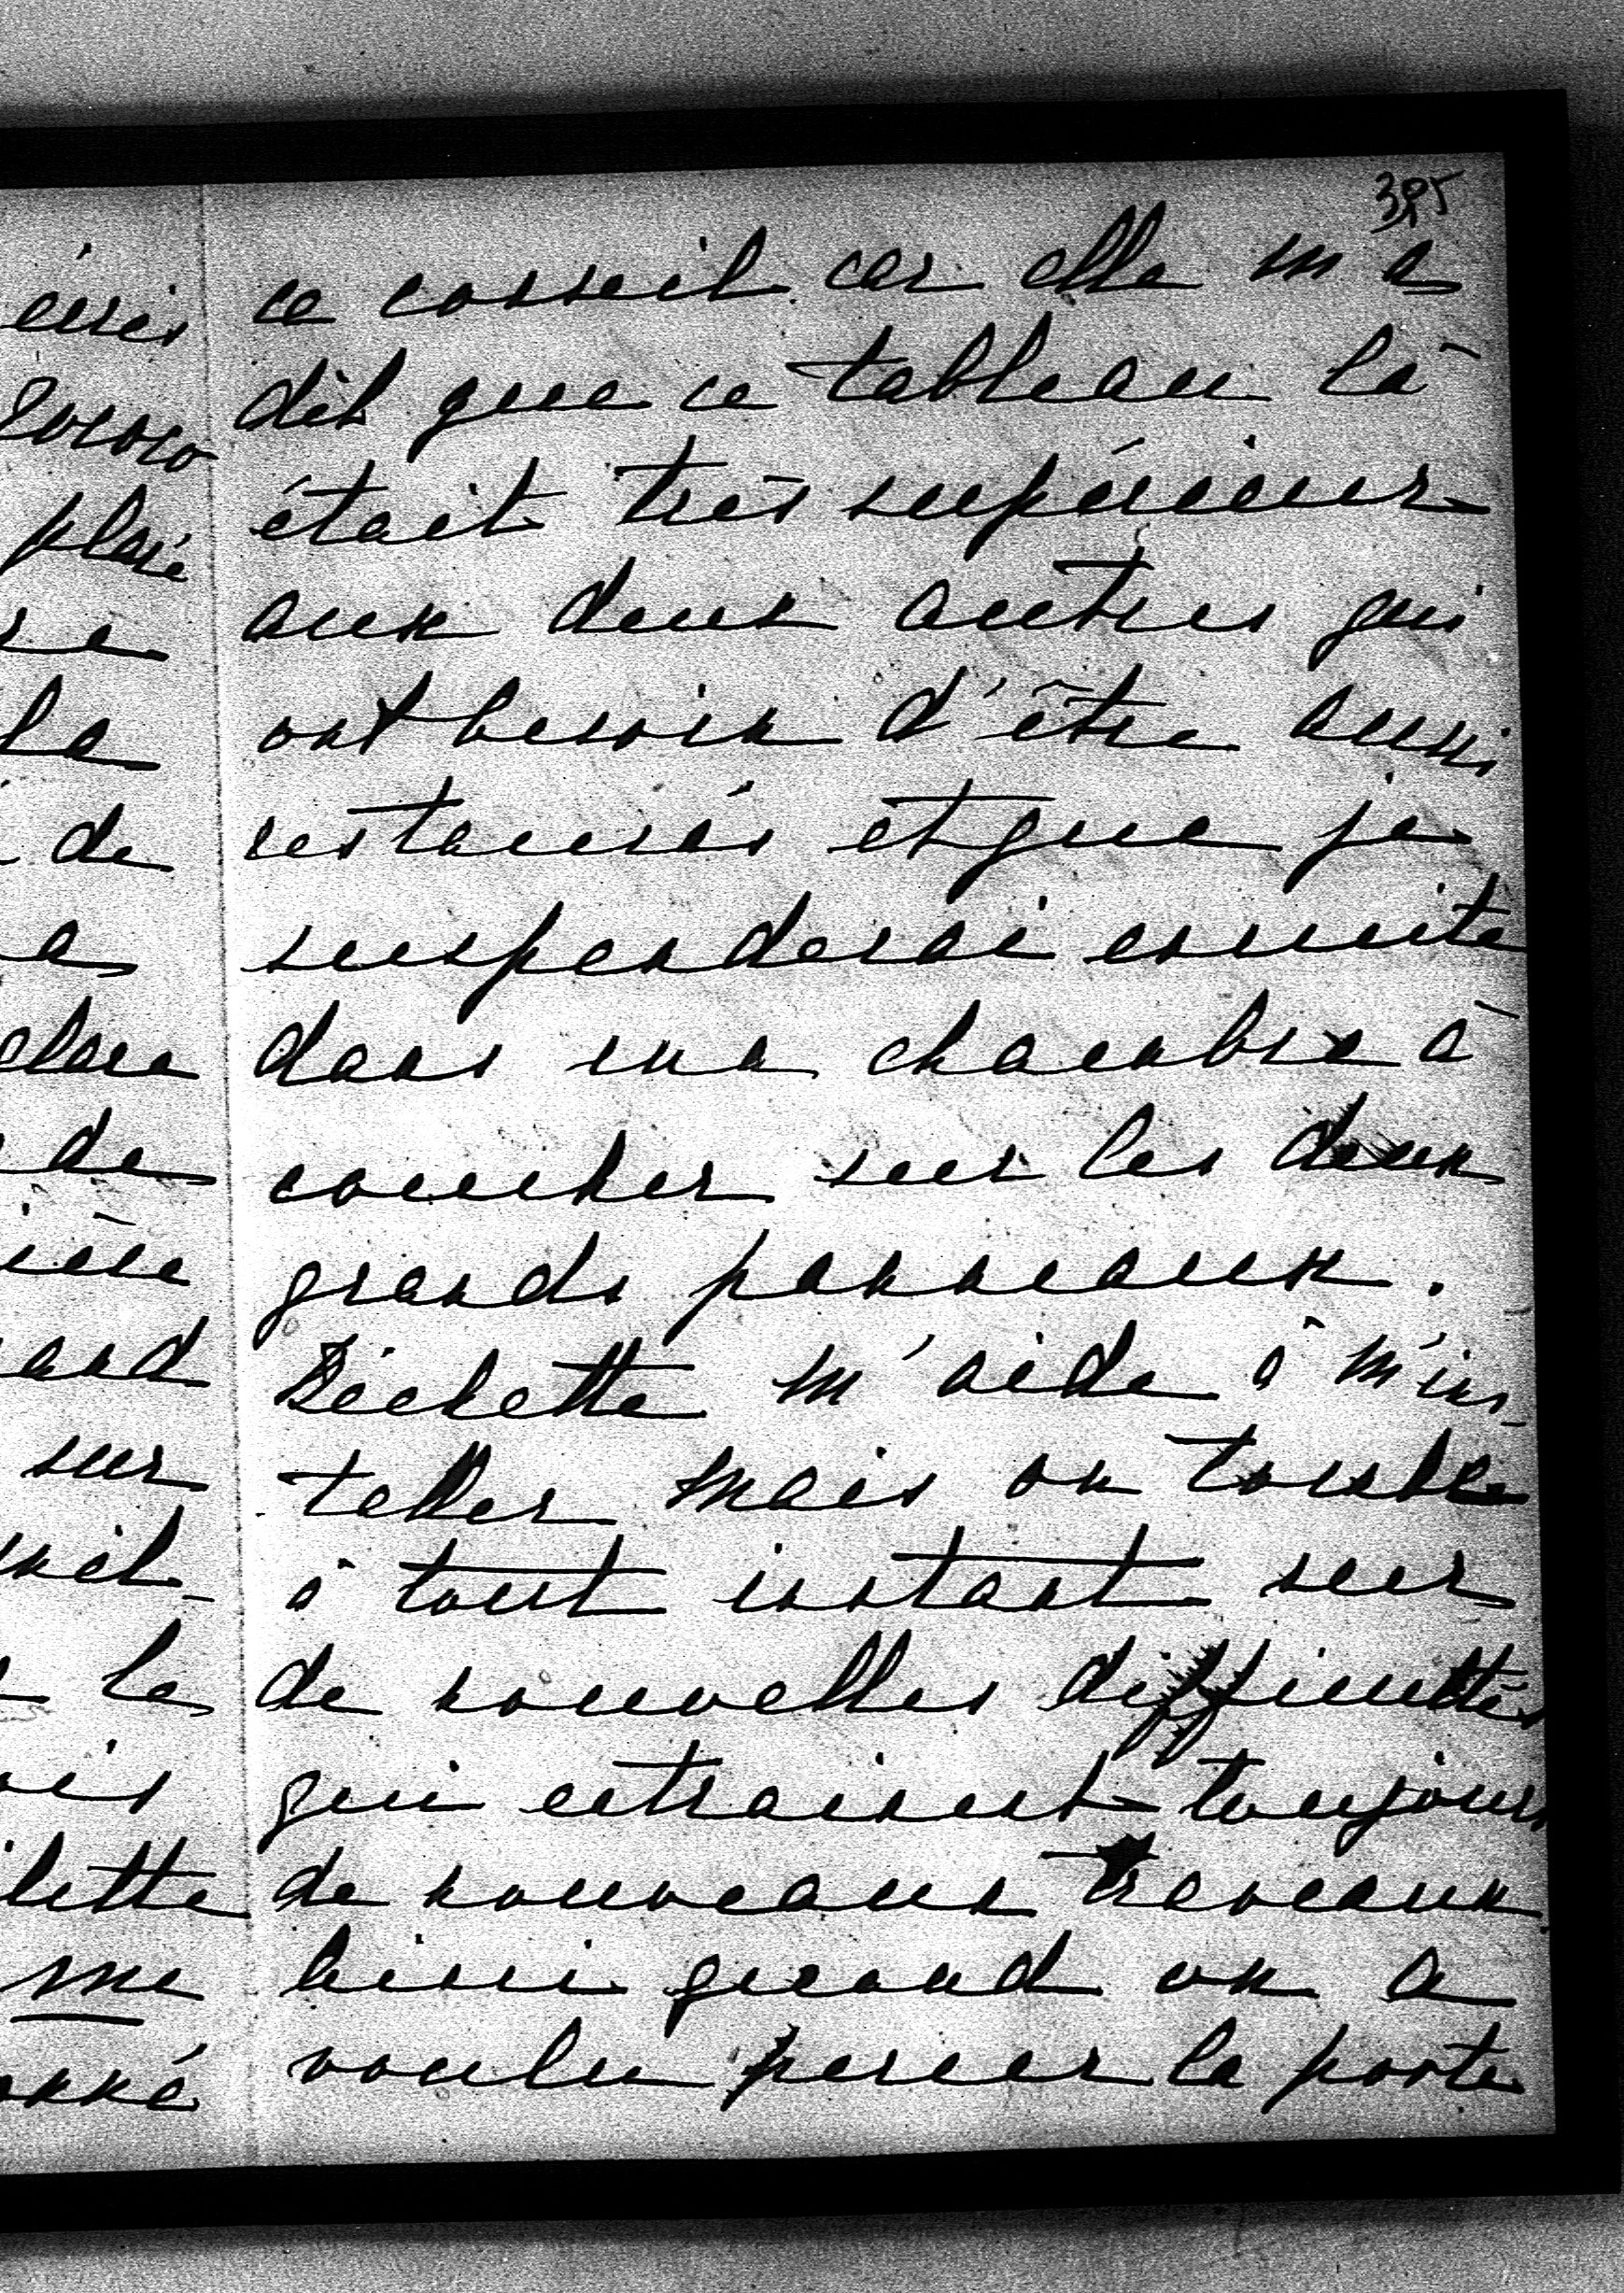 385
ce conseil car elle m'a
dit que ce tableau là
était très supérieur
aux deux autres qui
ont besoin d'être aussi
restaurés et que je
suspenderai ensuite
dans ma chambre à
coucher sur les deux
grands panneaux.
Béchette m'aide à m'ins-
taller mais on tombe
à tout instant sur
de nouvelles difficultés
qui entrainent toujours
de nouveaux traveaux.
hier quand on a
voulu percer la porte
la
de
de
sur
le
me